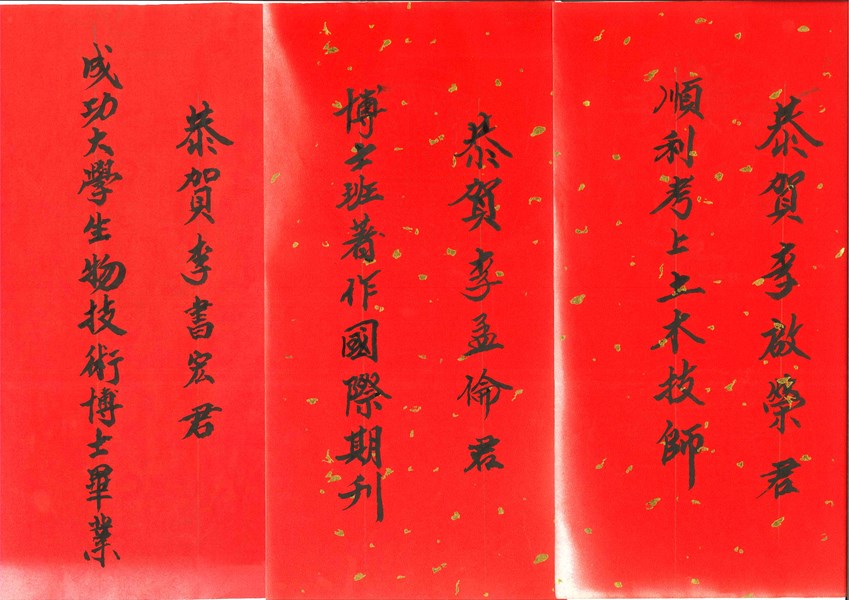 恭賀李啟榮君
順利考上土木技師
恭賀李孟倫君
博士班著作國際期刊
恭賀李書宏君
成功大學生物技術博士畢業